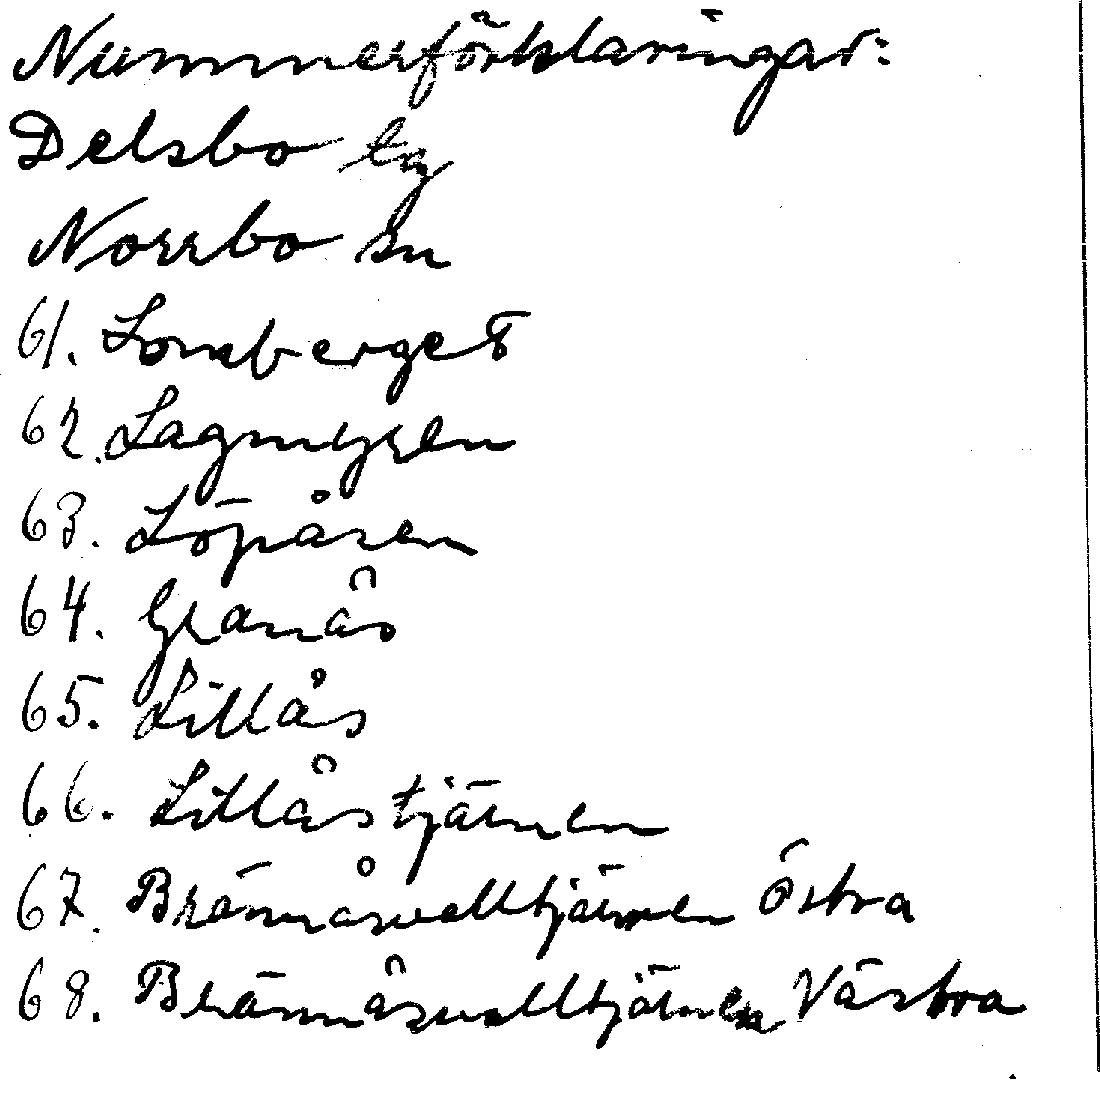 Nummerförklaringar:
Delsbo tg
Norrbo sn
61. Lomberget
62. Lagmyren
63. Löpåsen
64. Granås
65. Lillås
66. Lillåstjärnen
67. Brännåsvalltjärnen Östra
68. Brännåsvalltjärnen Västra